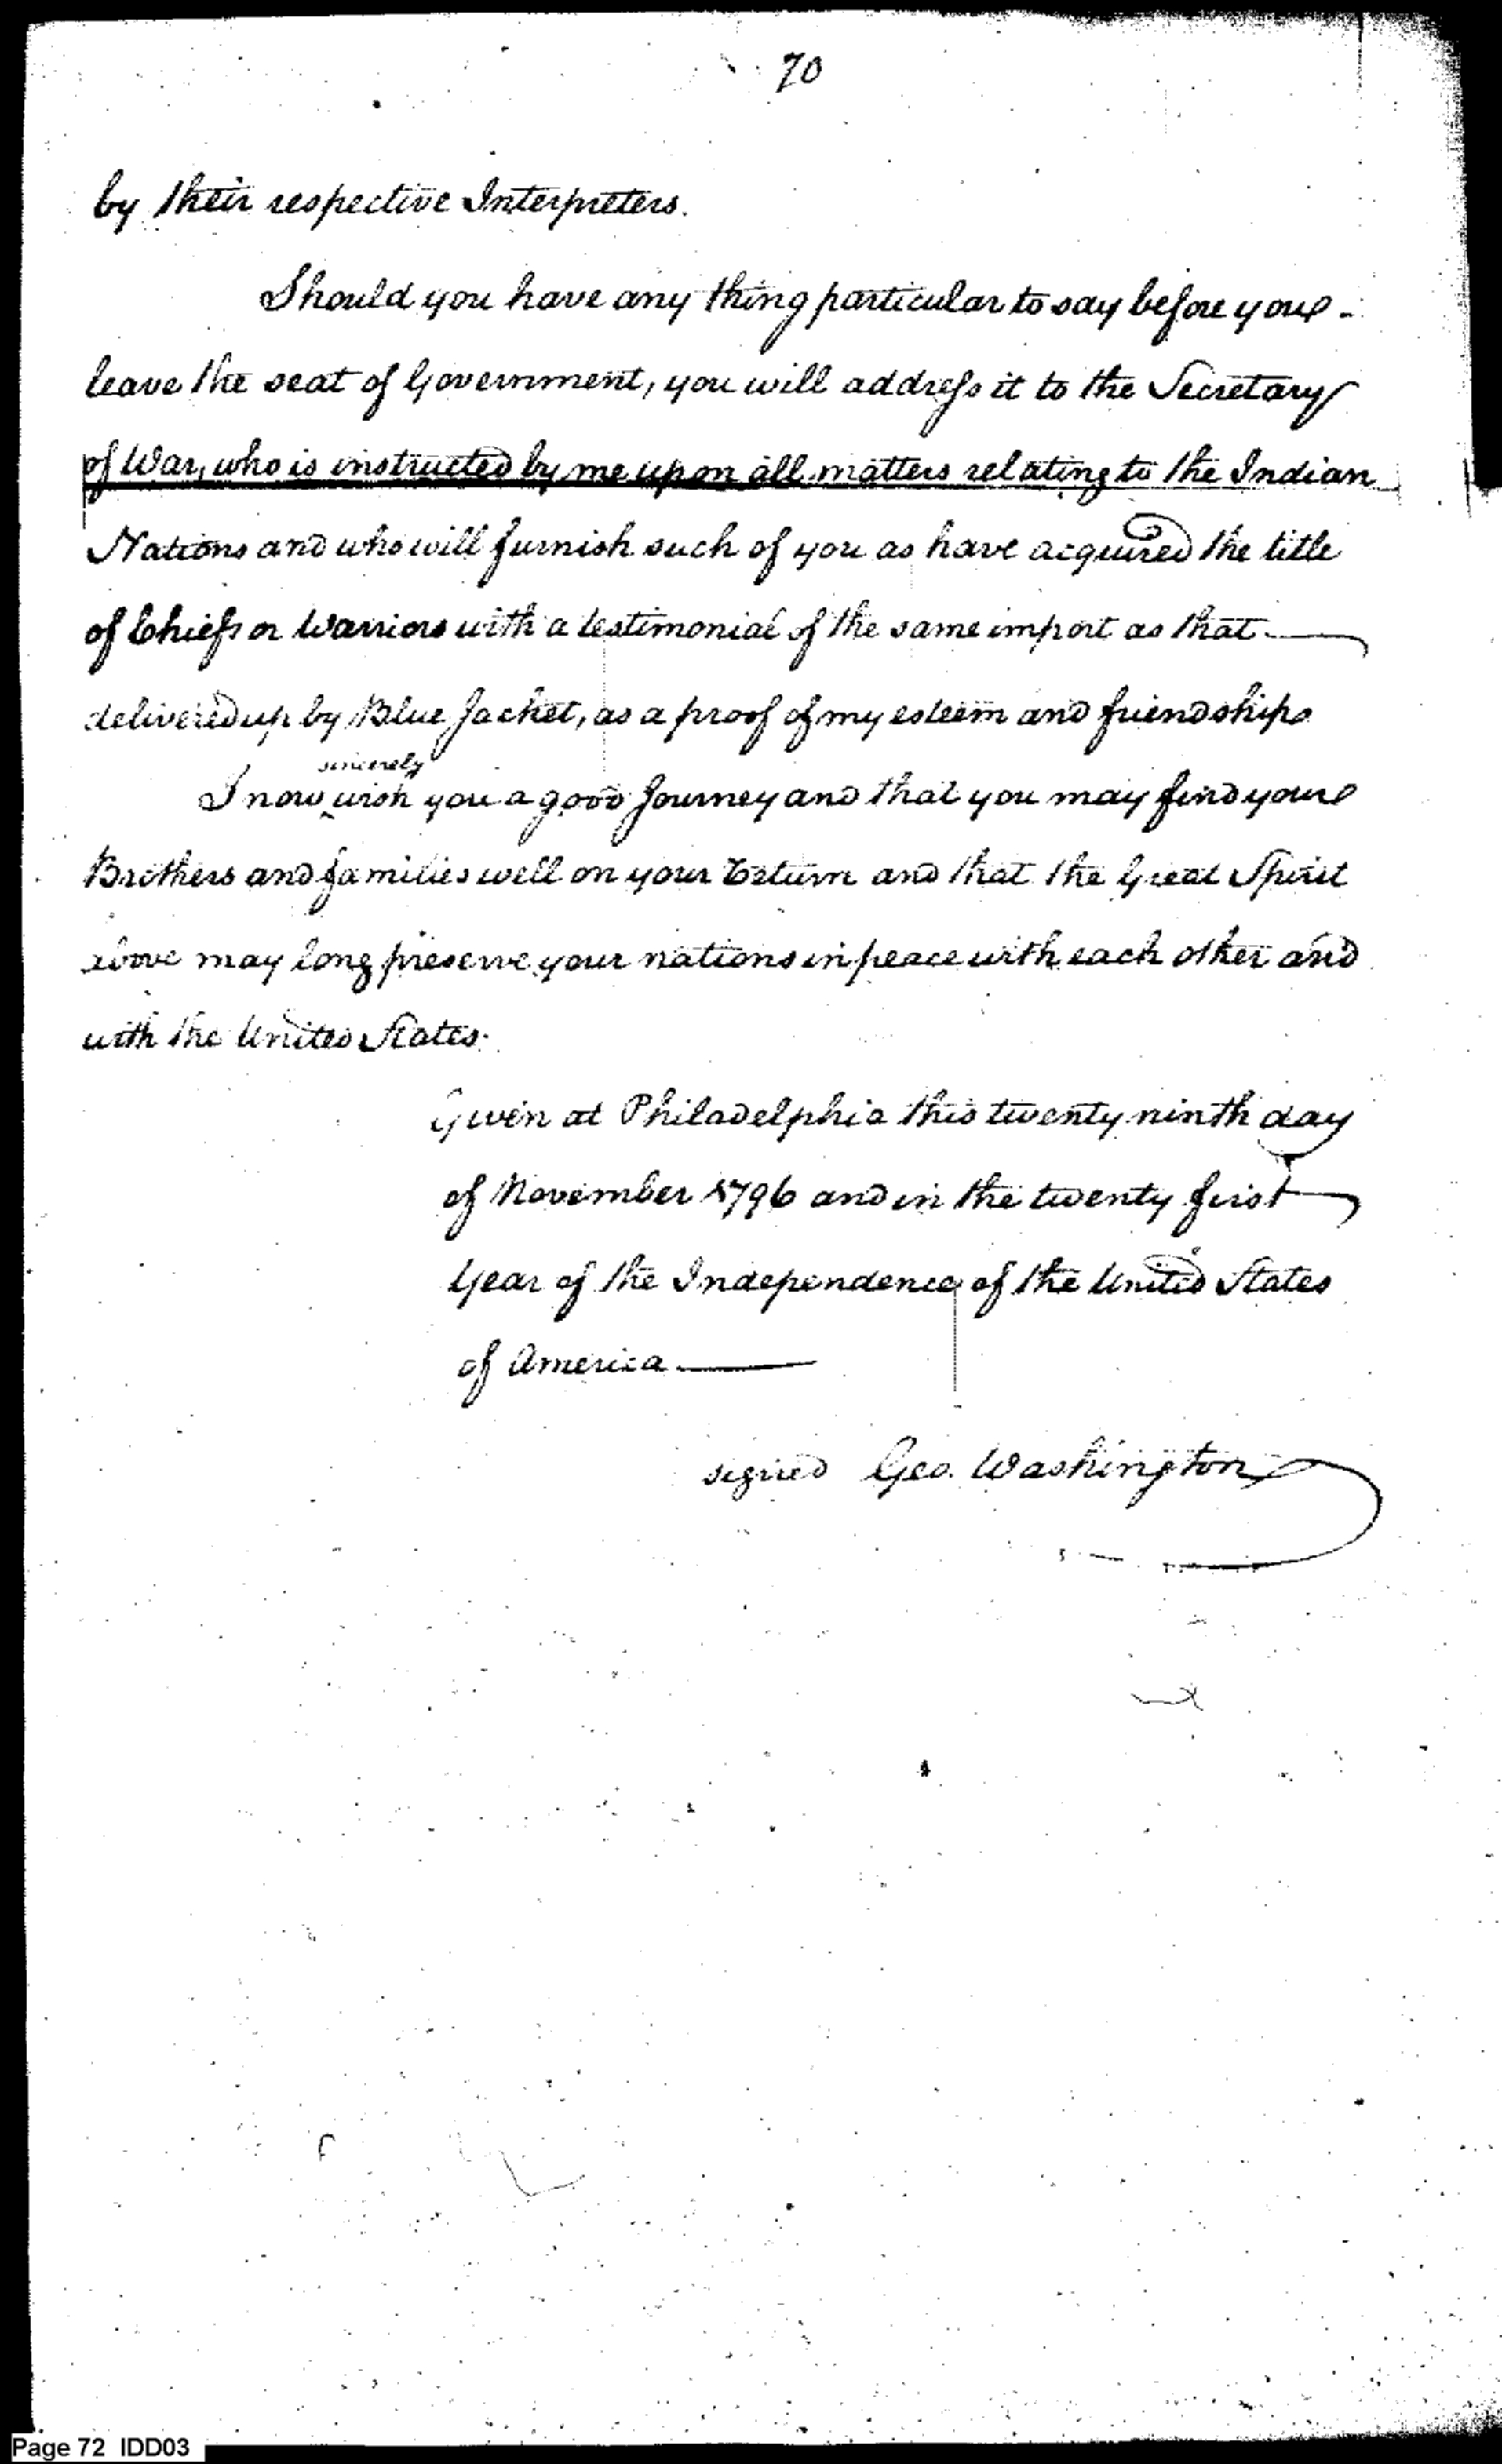 70
by their respective Interpreters.
Should you have any thing particular to say before you -
leave the seat of Government, you will address it to the Secretary
of War, who is instructed by me upon all matters relating to the Indian
Nations and who will furnish such of you as have acquired the title
of Chiefs or Warriors with a testimonial of the same import as that
delivered up by Blue Jacket, as a proof of my esteem and friendship
sincerely
I now wish you a good Journey and that you may find your
Brothers and families well on your Return and that the Great Spirit
above may long preserve your nations in peace with each other and
with the United States.
Given at Philadelphia this twenty ninth day
of November 1796 and in the twenty first
Year of the Independence of the United States
of America
signed Geo. Washington
Page 72 IDD03